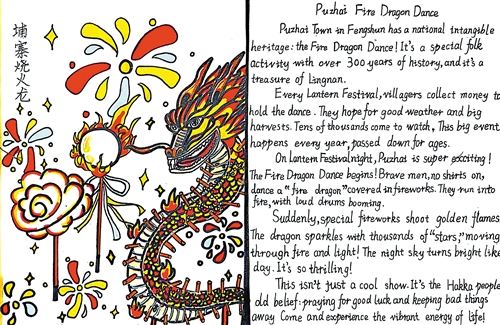 埔寨烧火龙
Puzhai Fire Dragon Dance
Puzhai Town in Fengshun has a national intangible
heritage: the Fire Dragon Dance! It's a special folk
activity with over 300 years of history, and it's a
treasure of Lingnan.
Every Lantern Festival, villagers collect money to
hold the dance. They hope for good weather and big
harvests. Tens of thousands come to watch, This big event
happens every year, passed down for ages.
On Lantern Festival night, Puzhai is super exciting!
The Fire Dragon Dance begins! Brave men, no shirts on,
dance a "fire dragon" covered in fireworks. They run into
fire, with loud drums booming.
Suddenly, special fireworks shoot golden flames.
The dragon sparkles with thousands of "stars," moving
through fire and light! The night sky turns bright like
day. It's so thrilling!
This isn't just a cool show. It's the Hakka people
old belief: praying for good luck and keeping bad things
away Come and experience the vibrant energy of life!